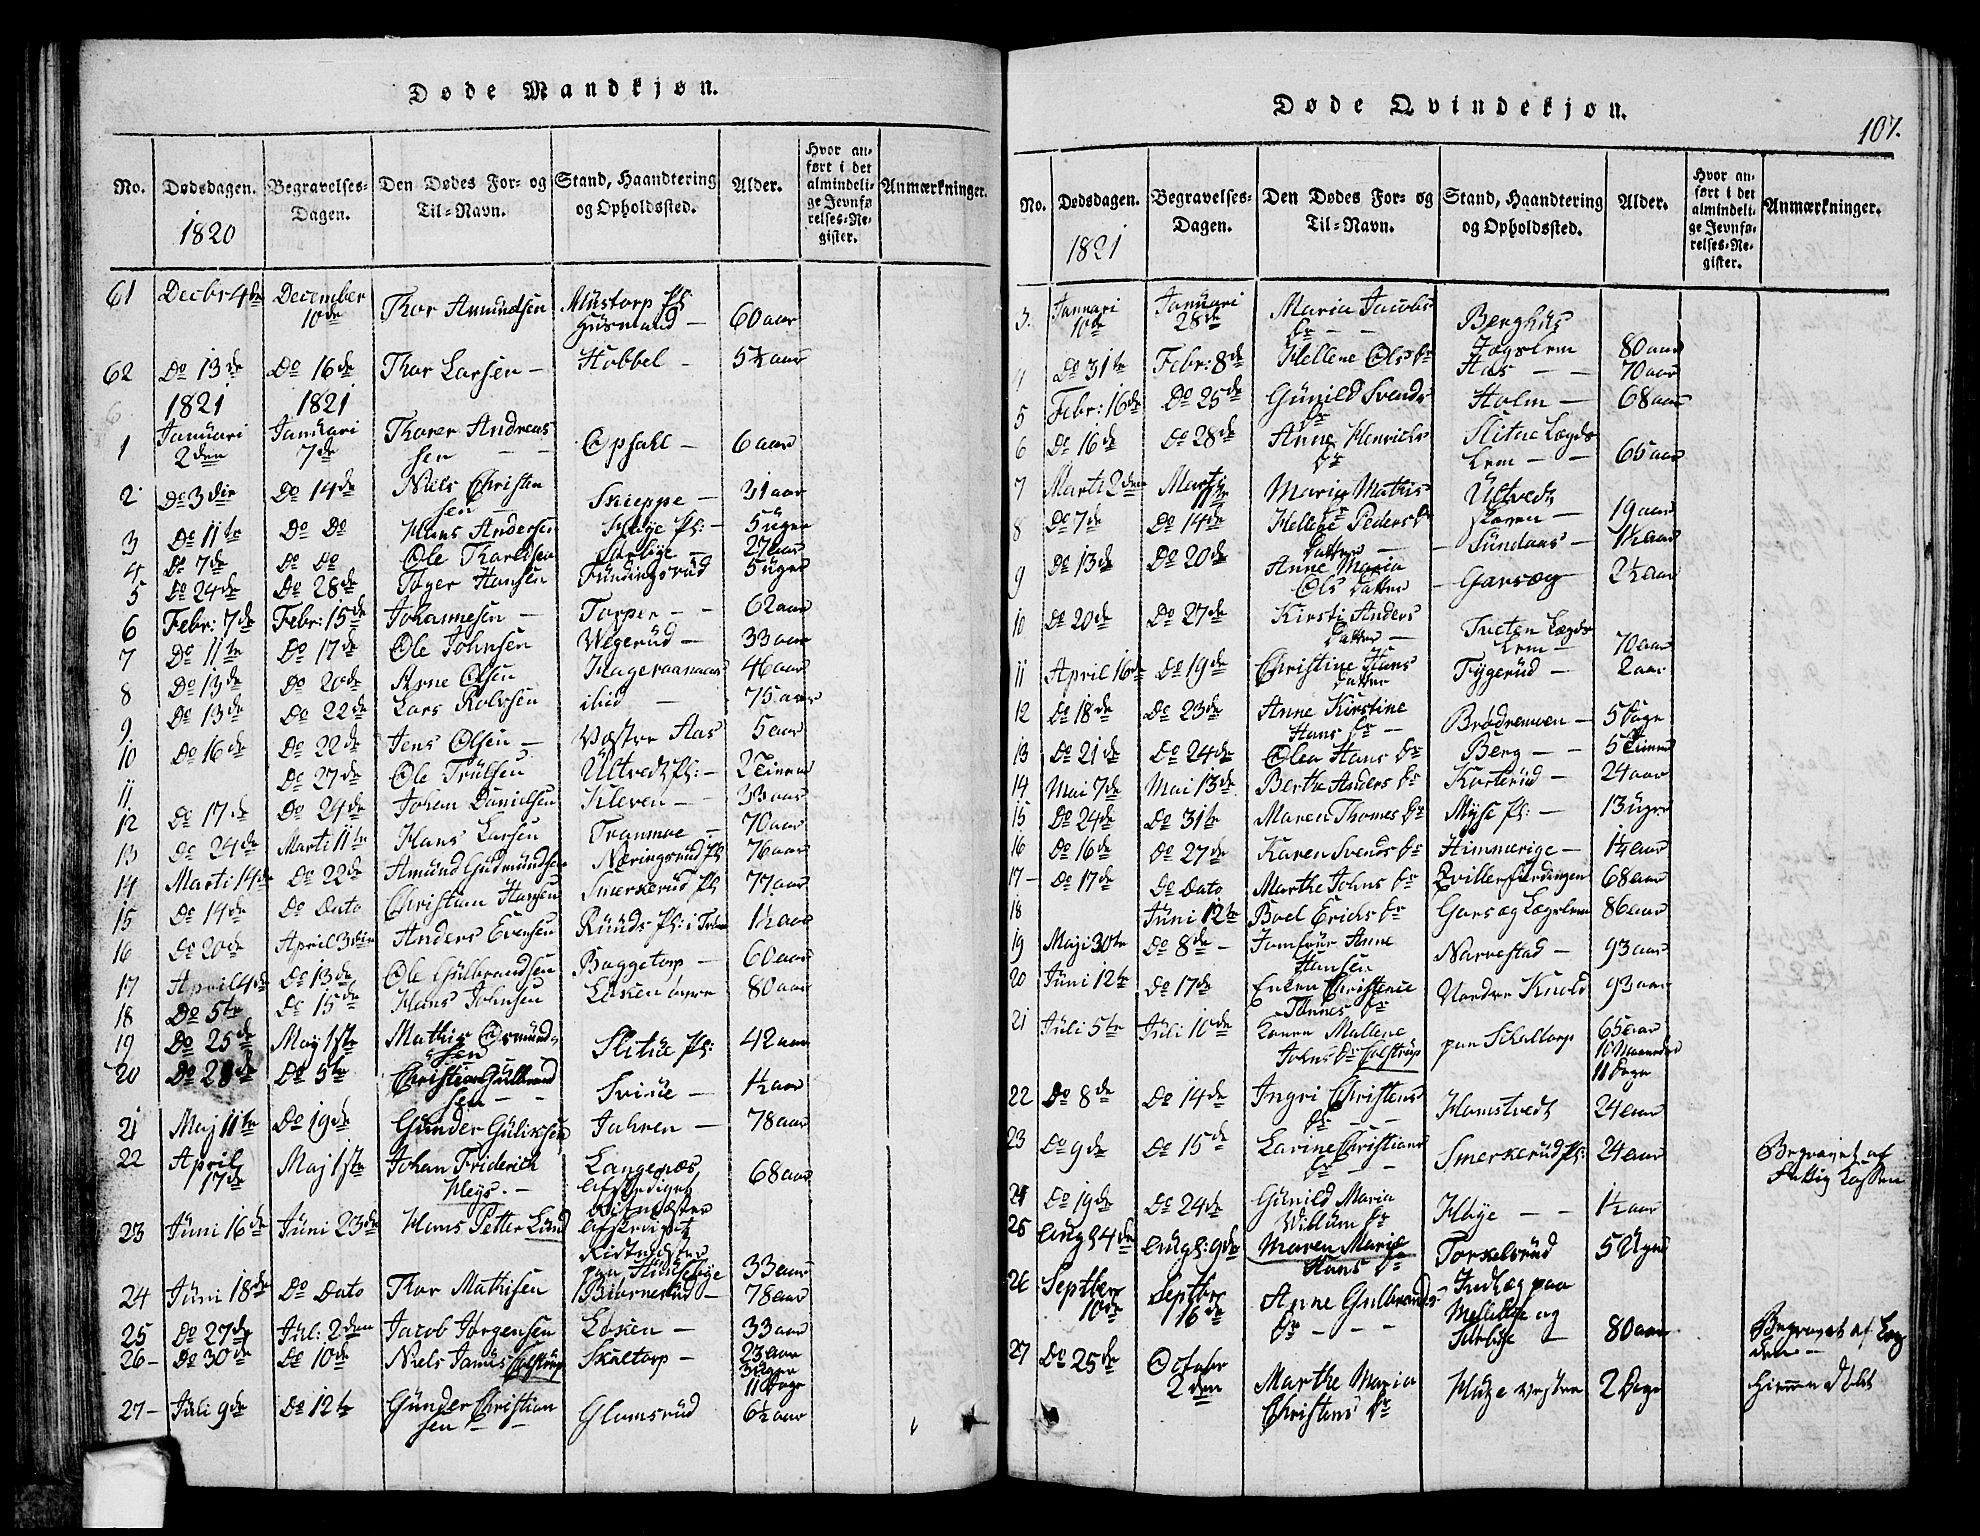 Døde Mandkjøn.
No. Dødsdagen. Begravelses-Dagen. Den Dødes For- og Til-Navn. Stand, Haandtering og Opholdssted. Alder. Hvor anført i det almindelige Jevnførelses-Register. Anmærkninger.
1820
61 Decbr 4de December 10de Thor Amundsen Mustorp Pl: Huusmand 60 aar
62 Do 13de Do 16de Thor Larsen Hobbel 5½ aar
1821 1821
1 Januari 2den Januari 7de Thorer Andreassen Opsall 6 aar
2 Do 3die Do 14de Niels Christensen Sneppe 31 aar
3 Do 11te Do Do Hans Andersen Pl: 5 uger
4 Do 7de Do Do Ole Thorersen 27 aar
5 Do 24de Do 28de Toger Hansen Fundingsrud 5 uger
6 Febr: 7de Febr: 15de Johannesen Torper 62 aar
7 Do 11te Do 17de Ole Johnsen Wegerud 33 aar
8 Do 13de Do 20de Arne Olsen 46 aar
9 Do 13de Do 22de Lars Rolvsen ibid 75 aar
10 Do 16de Do 22de Jens Olsen Væstre Aas 5 aar
11 Do 27de Ole Trulsen Ultvedt Pl: 2 Timer
12 Do 17de Do 24de Johan Danielsen Kleven 33 aar
13 Do 24de Marti 11te Hans Larsen Tranmoe 70 aar
14 Marti 14de Do 22de Amund Gudmundsen Næringsrud Pl 76 aar
15 Do 14de Do Dato Christian Hansen Smerkerud Pl 77 aar
16 Do 20de April 3die Anders Evensen Ruuds Pl: i 1½ aar
17 April 4de Do 13de Ole Gulbrandsen Baggetorp 60 aar
18 Do 5te Do 15de Hans Johnsen Løken øvre 80 aar
19 Do 25de Maj 1ste Mathis Osmundsen Slitue Pl: 42 aar
20 Do 28de Do 5te Christian Gulbrandsen Svinue 1½ aar
21 Maj 11te Do 19de Gunder Guliksen Jahren 78 aar
22 April 17de Maj 1ste Johan Friderich Heys. Langenæs Afskediget Ritmæster 68 aar
23 Juni 16de Juni 23de Hans Petter Lund Afskediget Ridtmæster paa 33 aar
24 Juni 18de Do Dato Thor Mathisen Biørnerud 78 aar
25 Do 27de Jul: 2den Jacob Jørgensen Løken 33 aar
26 Do 30de Do 10de Niels Janus Colstrup Skaltorp 23 aar 3 uger 11 Dage
27 Juli 9de Do 12te Gunder Christiansen Glamsrud 6½ aar
Døde Qvindekjøn.
107.
No. Dødsdagen. Begravelses-Dagen. Den Dødes For- og Til-Navn. Stand, Haandtering og Opholdssted. Alder. Hvor anført i det almindelige Jevnførelses-Register. Anmærkninger.
1821
3. Januari 10de Januari 28de Maria Jacobs Dr Berghus Lægslem 80 aar
4 Do 31te Febr: 8de Hellene Ols Dr Aas 70 aar
5 Febr: 16de Do 25de Gunild Svends Dr Holm 68 aar
6 Do 16de Do 28de Anne Henrichs Dr Slitue Lægdslem 65 aar
7 Marti 2den Marty 11te Maria Mathis Dr Ultvedt 19 aar
8 Do 7de Do 14de Hellene Peders Datter Sundaas 1½ aar
9 Do 13de Do 20de Anne Maria Ols Datter Garseg 2½ aar
10 Do 20de Do 27de Kirsti Anders Datter Tveten Lægdslem 70 aar
11 April 16de Do 19de Christine Hans Datter Tygerud 2 aar
12 Do 18de Do 23de Anne Kirstine Hans Dr Brødremoen 5 Dage
13 Do 21de Do 24de Olea Hans Dr Berg 5 Timer
14 Mai 7de Mai 13de Berthe Anders Dr Korterud 24 aar
15 Do 24de Do 31te Maren Thomes Dr Myse Pl: 13 uger
16 Do 16de Do 27de Karen Svends Dr Himmerige 1¼ aar
17 Do 17de Do Dato Marthe Johns Dr 68 aar
18 Juni 12te Boel Erichs Dr Garseg Lægslem 86 aar
19 Maji 30te Do 8de Jomfrue Anne Hansen Narvestad 93 aar
20 Juni 12te Do 17de Enken Christence Tønnes Dr Nordre Knold 93 aar
21 Juli 5te Juli 10de Konen Mallene Johns Dr Colstrup paa Schaltorp 65 aar 10 Maaneder 11 Dage
22 Do 8de Do 14de Ingri Christens Dr Homstvedt 24 aar
23 Do 9de Do 15de Larine Christians Dr Smerkerud Pl: 24 aar Begravet af Fattig Cassen
24 Do 19de Do 24de Gunild Maria Willum Dr Høye 1½ aar
25 Augs 4de Augs: 9de Maren Maria Hans Dr Torkelsrud 5 Uger
26 Septber 10de Septbr 16de Anne Gulbrands Dr Indlæg paa Mellebye og 80 aar Begravet af Lægden
27 Do 25de October 2den Marthe Maria Christens Dr vestre 2 Dage Hiemme døbt